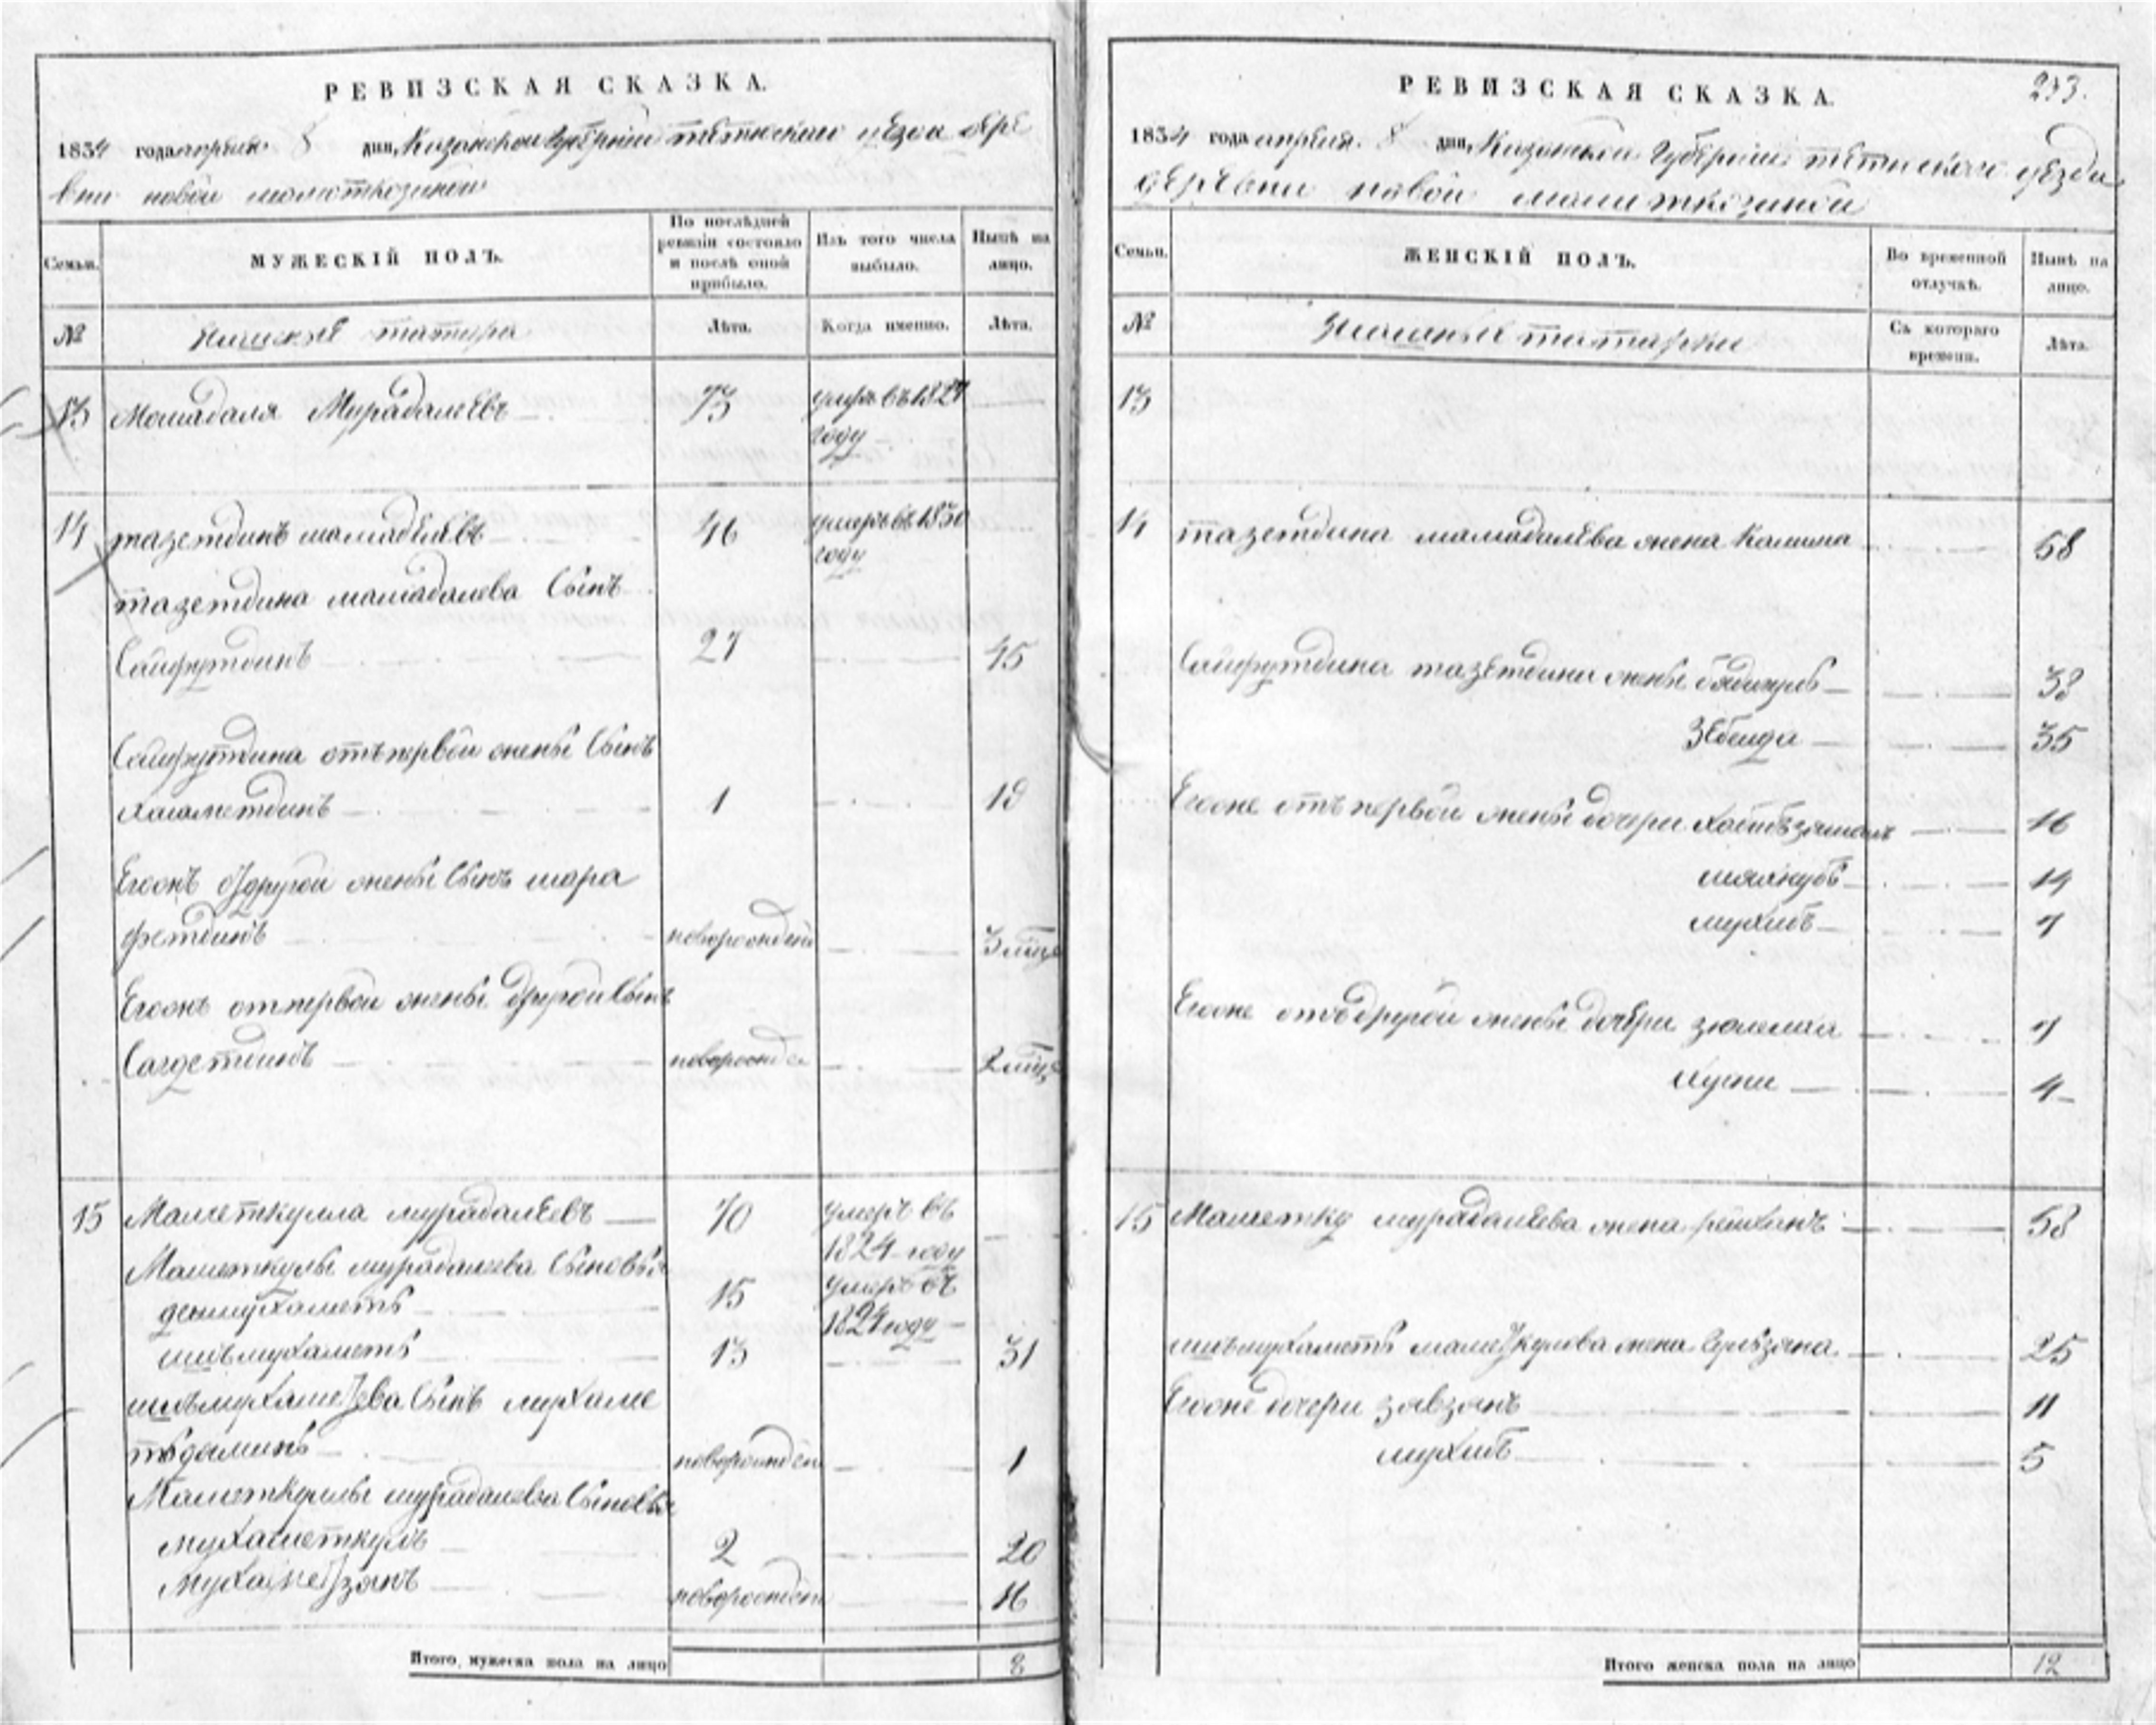 РЕВИЗСКАЯ СКАЗКА.
1834 года апреля 8 дня, Казанской Губернии тетюскаго уезда дере
вни новой маматкозиной
Семьи. МУЖЕСКІЙ ПОЛЪ. По послѣдней ревизіи состояло и послѣ оной прибыло. Изъ того числа выбыло. Нынѣ на лицо.
№ татара Лѣта. Когда именно. Лѣта.
13 Мамадаля Мурадалеевъ 73 умръ въ 1827
году
14 тазетдинъ мамадалеевъ 46 умеръ въ 1830
году
тазетдина мамадалева Сынъ
Сайфутдинъ 27 45
Сайфутдина отъ первой жены Сынъ
Хисаметдинъ 1 19
Егожъ другой жены Сынъ шара
фетдинъ новорожден 3 мѣце
Егожъ от первой жены другой Сынъ
Сагдетдинъ новорожде 2 мѣце
15 Маметкулла мурадалеевъ 70 умеръ въ
1824 году
Маметкулы мурадалеева Сыновья
денмухаметъ 15 умеръ въ
1824 году
ишьмухаметъ 13 31
ишьмухаметева Сынъ мухаме
тьдаминъ новорожден 1
Маметкуллы мурадалеева Сыновья
мухаметкулъ 2 20
Мухаметзянъ новорожден 16
Итого мужеска пола на лицо 8
РЕВИЗСКАЯ СКАЗКА.
253.
1834 года апреля 8 дня, Казанской Губернии тетюскаго уезда
деревни новой маматкозиной
Семьи. ЖЕНСКІЙ ПОЛЪ. Во временной отлучкѣ. Нынѣ на лицо.
№ татарки Съ котораго времени. Лѣта.
13
14 тазетдина мамадалева жена Калима 58
Сайфутдина тазетдина жены бядигуль 38
Зебейда 35
Егоже отъ первой жены дочери Хабибзямалъ 16
14
мухибъ 7
Егоже отъ другой жены дочери зюлейха 7
Хусни 4
15 Маметку мурадалеева жена рейханъ 58
ишьмухаметъ маметкулова жена 25
Егоже дочери 11
мухибъ 5
Итого женска пола на лицо 12